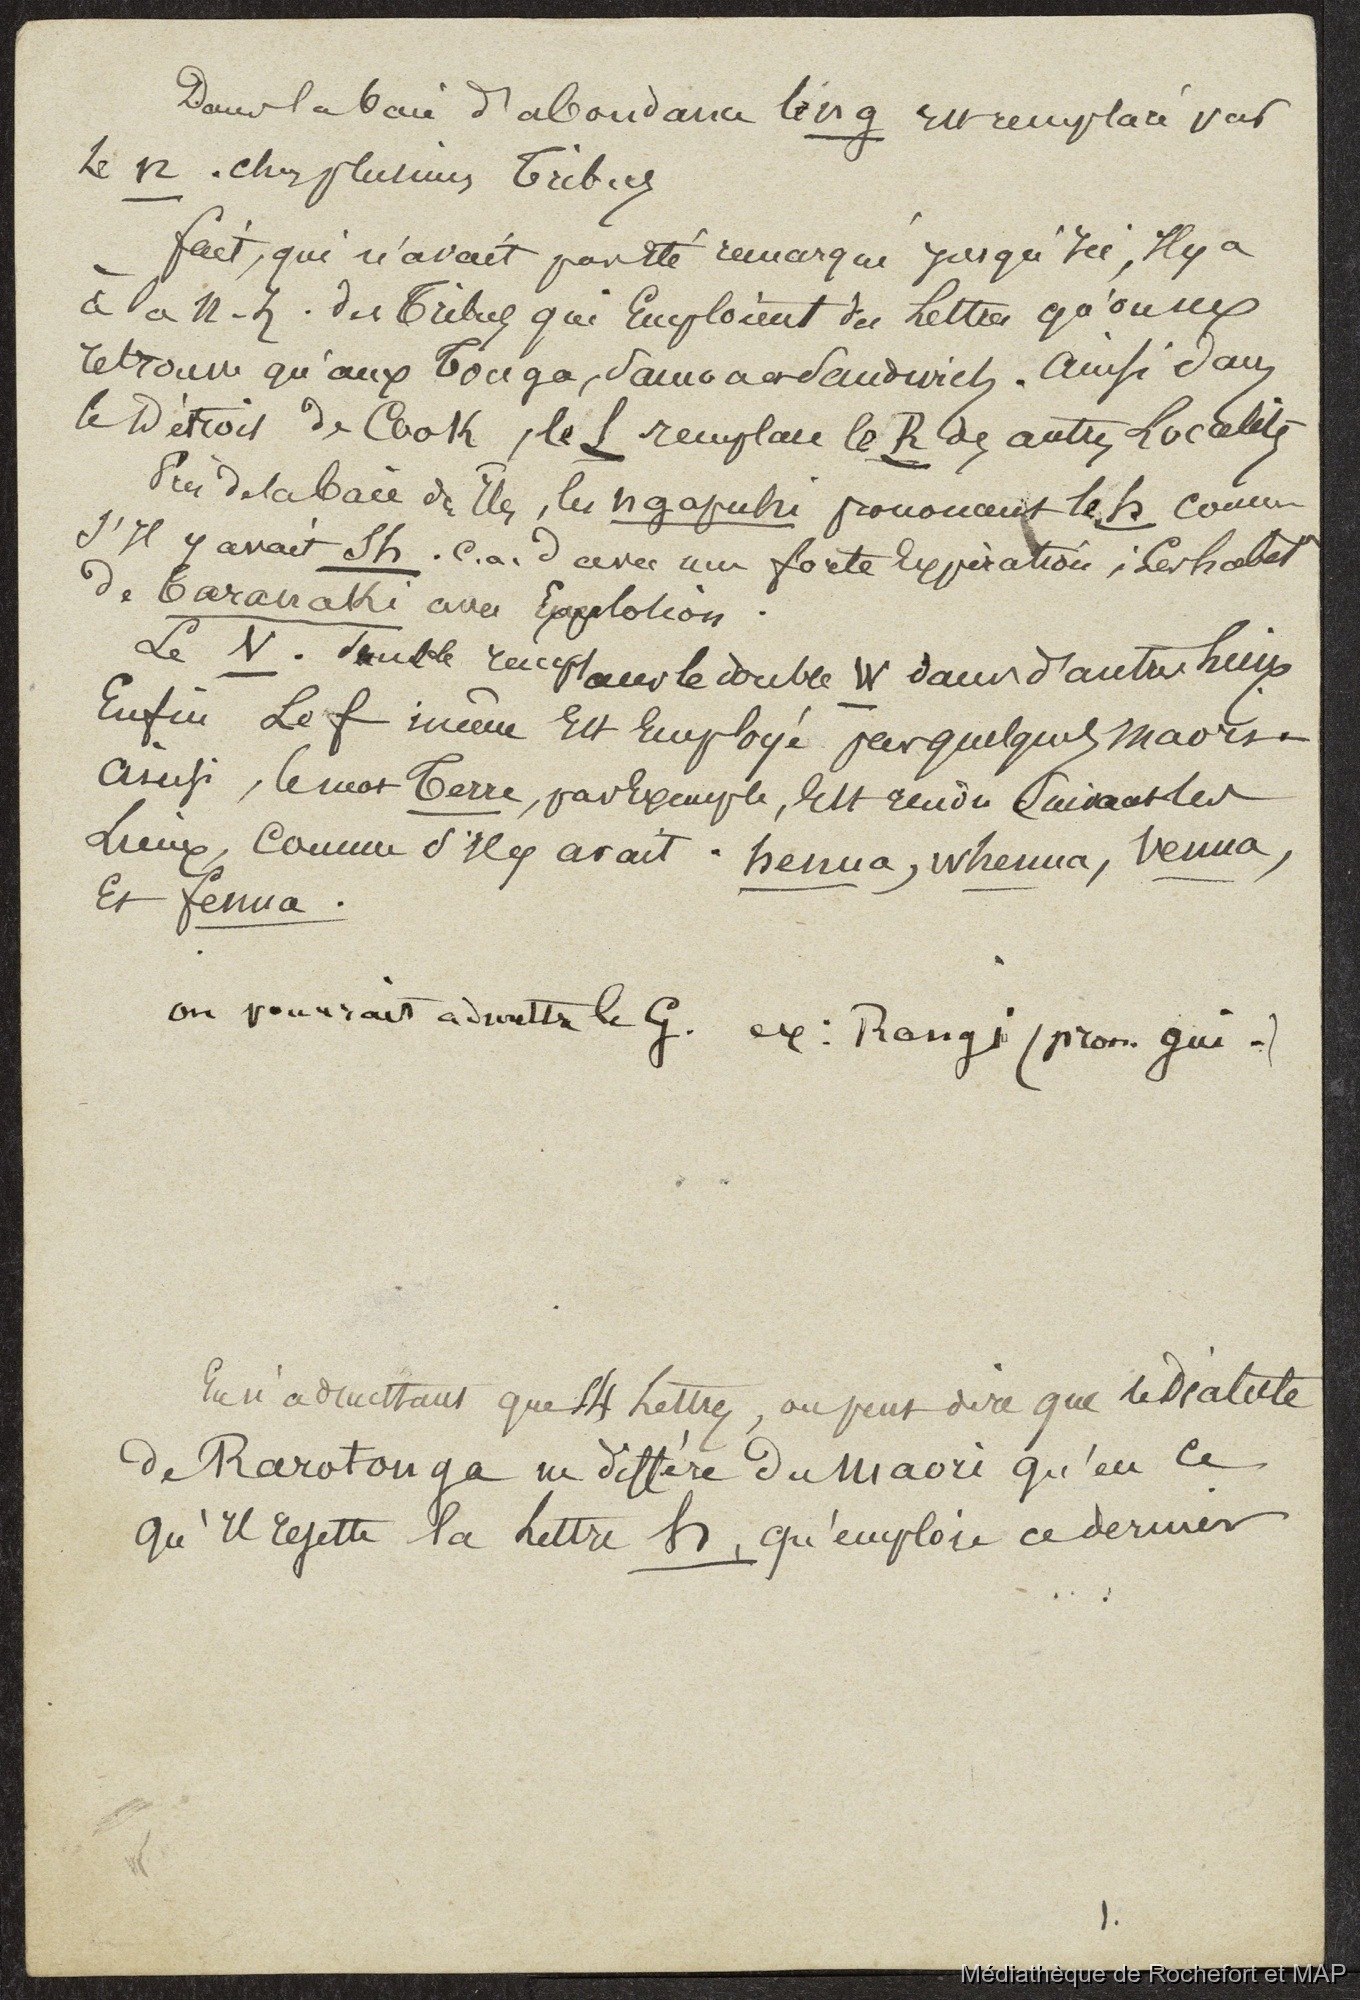 Dans la baie d'abondance le ng est remplacé par
le n . chez plusieurs Tribus
fait, qui n'avait pas été remarqué jusqu'ici, Il y a
à la N. Z. des Tribus qui Emploient des Lettres qu'on ne
retrouve qu'aux Tonga, Samoa et Sandwich. Ainsi dans
le Détroit de Cook, le L remplace le R des autres Localités
Près de la baie des Iles, les ngapuhi prononcent le h comme
s'Il y avait Sh . c.a.d avec une forte Expiration ; Les habit
de Taranaki avec Explosion .
Le V . semble remplacer le double W dans d'autres Lieux
Enfin Le f même Est Employé par quelques Maoris .
Ainsi, le mot Terre, par Exemple, Est rendu Suivant les
Lieux, comme s'Il y avait . henua, whenua, venua,
Et fenua .
on pourrait admettre le G. ex : Rangi (pron. gui -)
En n'admettant que 14 Lettres, on peut dire que le Dialecte
de Rarotonga ne diffère du Maori qu'en ce
qu'Il rejette la Lettre h, qu'emploie ce dernier
1.
Médiathèque de Rochefort et MAP